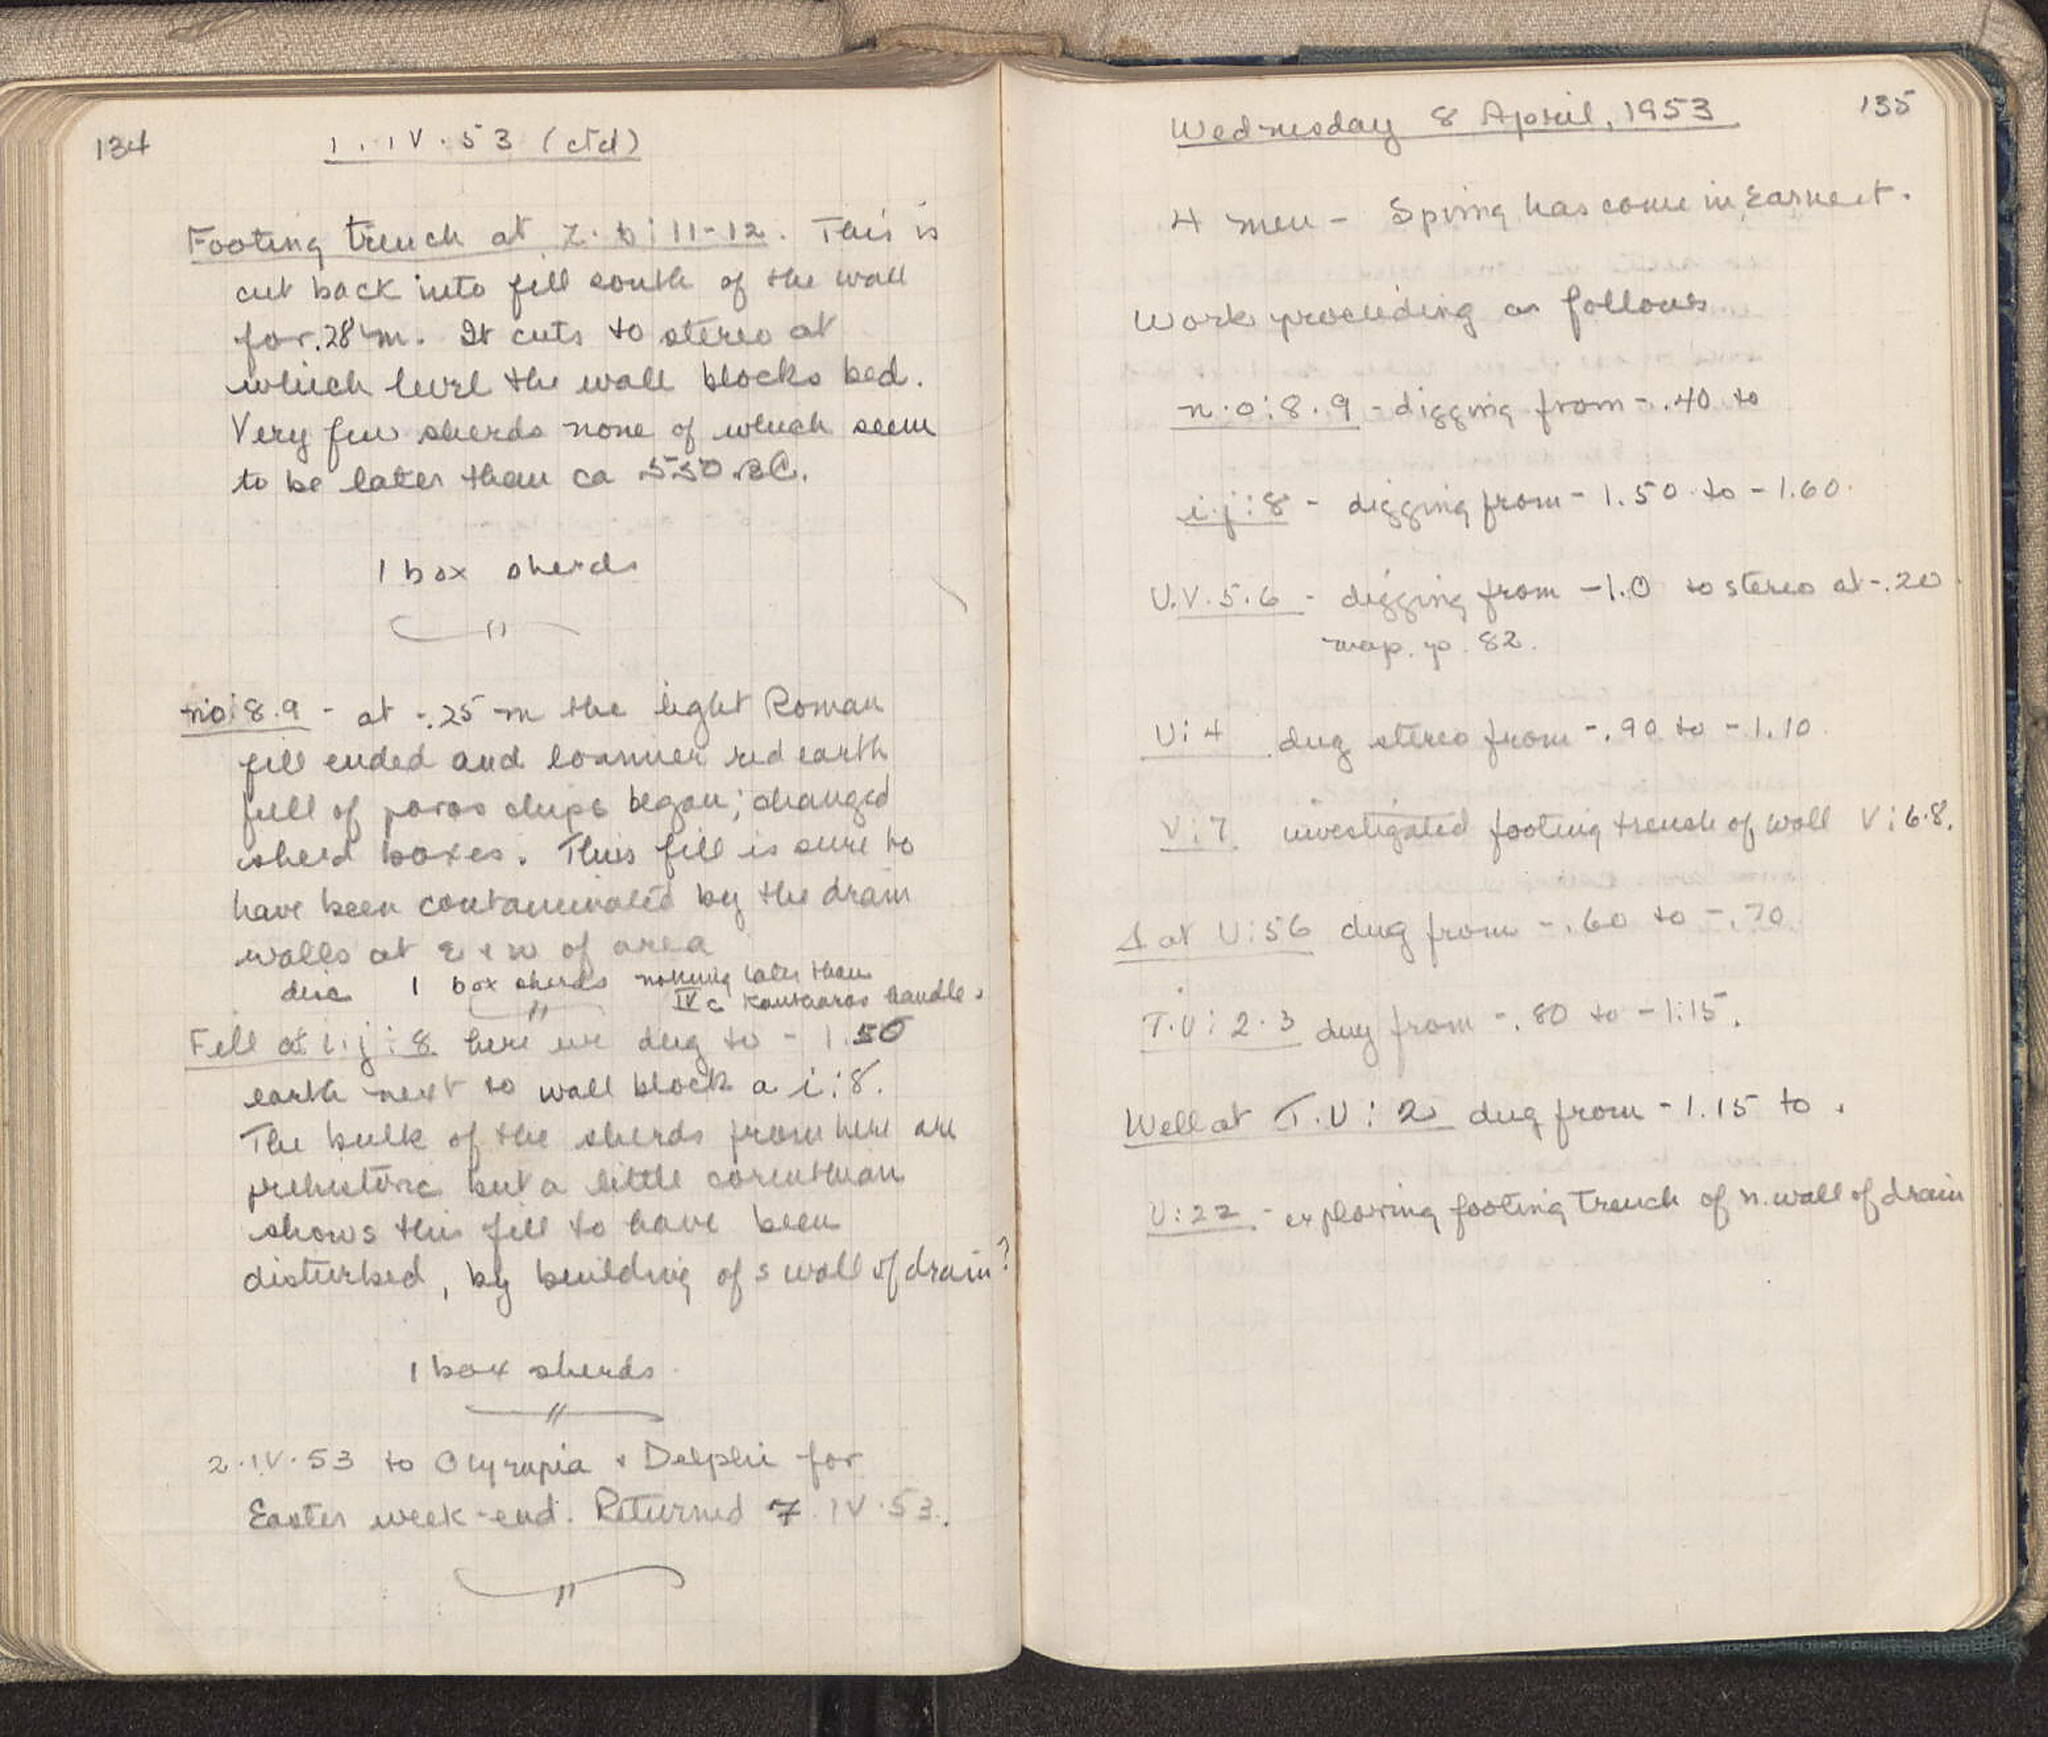 134
1.IV.53 (ctd)
Footing trench at z.b:11-12. This is
cut back into fill south of the wall
for .28 m. It cuts to stereo at
which level the wall blocks bed.
Very few sherds none of which seem
to be later than ca 550 BC.
1 box sherds
n.o:8.9 - at -.25 m the light Roman
fill ended and loamier red earth
full of poros chips began; changed
sherd boxes. This fill is sure to
have been contaminated by the drain
walls at E & W of area
disc 1 box sherds nothing later than
IV c kantharos handle.
Fill at i.j:8 here we dug to -1.50
earth next to wall block a i:8.
The bulk of the sherds from here are
prehistoric but a little corinthian
shows this fill to have been
disturbed, by building of s wall of drain?
1 box sherds
2.IV.53 to Olympia & Delphi for
Easter week-end. Returned 7.IV.53.
135
Wednesday 8 April, 1953
4 men - Spring has come in Earnest.
Work proceeding as follows
n.o:8.9 - digging from -.40 to
i.j:8 - digging from -1.50 to -1.60.
U.V.5.6 - digging from -1.0 to stereo at -.20
map. p. 82.
U:4 dug stereo from -.90 to -1.10.
V:7 investigated footing trench of wall V:6.8.
at U:56 dug from -.60 to -.70.
T.U:2.3 dug from -.80 to -1.15.
Well at T.U:2 dug from -1.15 to .
U:22 - exploring footing trench of n. wall of drain